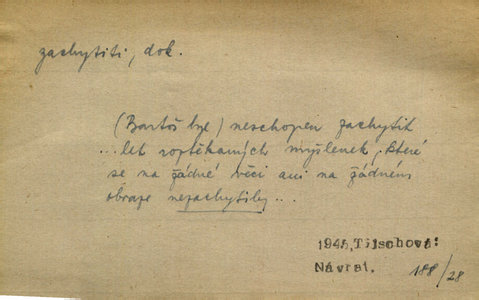 zachytiti, dok.
(Bartoš byl) neschopen zachytit
...let roztěkaných myšlenek, které
se na žádné věci ani na žádném
obraze nezachytily...
1945, Tilschová:
Návrat. 188/28